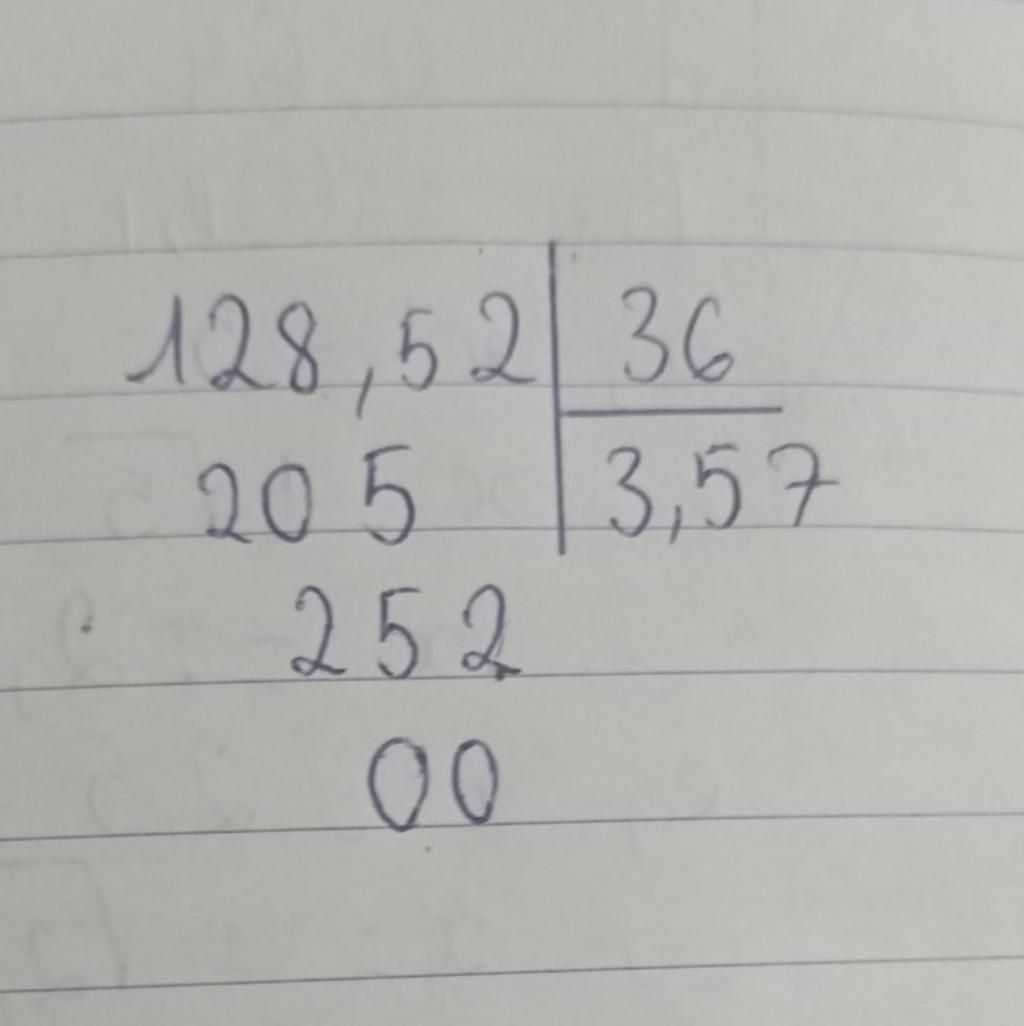 128,52 36
205 3,57
252
00